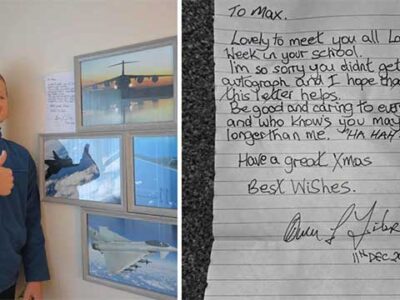 To Max.
Lovely to meet you all
Week in your school.
I'm so sorry you didnt get
autograph and I hope
this letter helps.
Be good and caring to
and who knows you may
longer than me. "HA HA
Have a great Xmas
Best Wishes.
11TH DEC